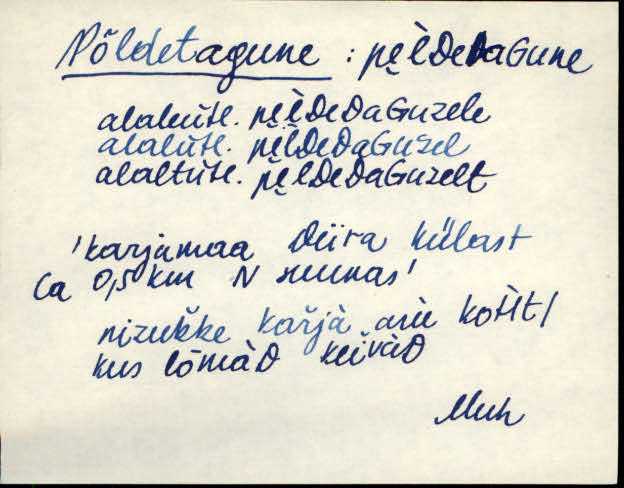 Põldetagune : pe̮l̀DeDaGune
alaleütl. pe̮l̀DeDaGuzele
alalütl. pe̮l̀DeDaGuzel
alaltütl. pe̮l̀DeDaGuzelt
'karjamaa Diira külast
Ca 0,5 km N suunas'
nizukke kařjà asù koht /
kus lōmàD keivàD
Muh